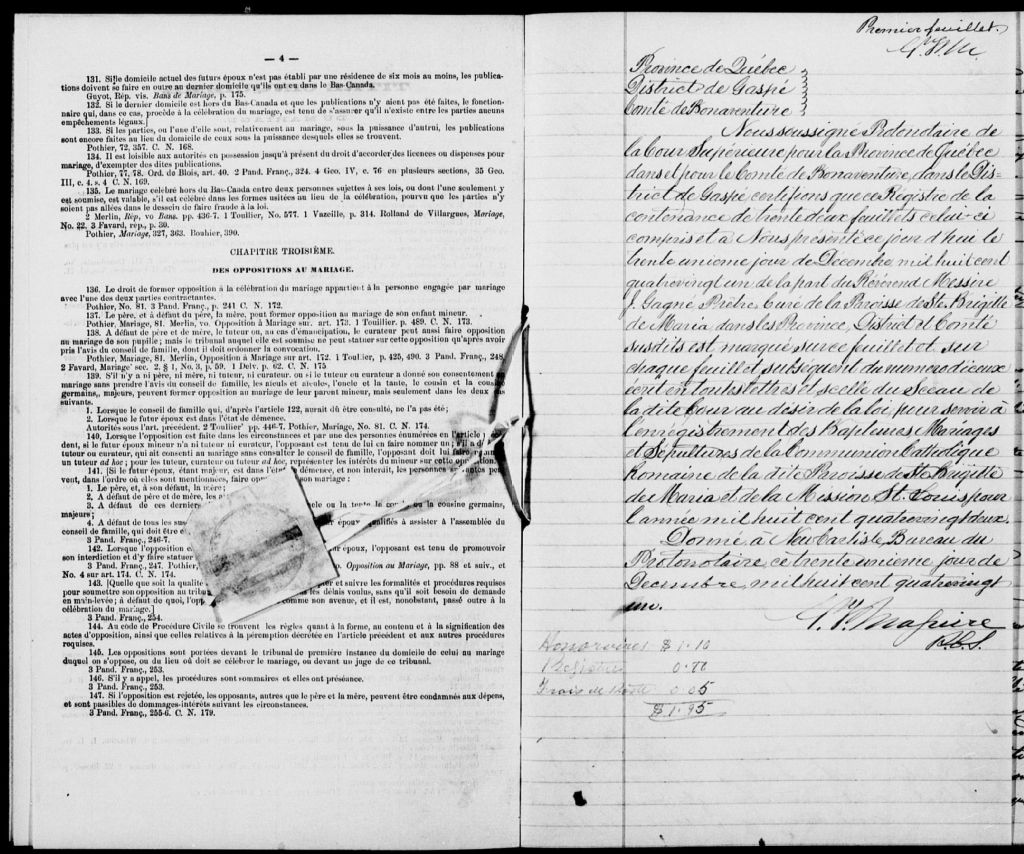 — 4 —
131. Si le domicile actuel des futurs époux n'est pas établi par une résidence de six mois au moins, les publica-
tions doivent se faire en outre au dernier domicile qu'ils ont eu dans le Bas-Canada.
Guyot, Rép. vis. Bans de Mariage, p. 175.
132. Si le dernier domicile est hors du Bas-Canada et que les publications n'y aient pas été faites, le fonction-
naire qui, dans ce cas, procède à la célébration du mariage, est tenu de s'assurer qu'il n'existe entre les parties aucuns
empêchements légaux.]
133. Si les parties, ou l'une d'elle sont, relativement au mariage, sous la puissance d'autrui, les publications
sont encore faites au lieu du domicile de ceux sous la puissance desquels elles se trouvent.
Pothier, 72, 357. C. N. 168.
134. Il est loisible aux autorités en possession jusqu'à présent du droit d'accorder des licences ou dispenses pour
mariage, d'exempter des dites publications.
Pothier, 77, 78. Ord. du Blois, art. 40. 2 Pand. Franç., 324. 4 Geo. IV, c. 76 en plusieurs sections, 35 Geo.
III, c. 4. s. 4 C. N. 169.
135. Le mariage célébré hors du Bas-Canada entre deux personnes sujettes à ses lois, ou dont l'une seulement y
est soumise, est valable, s'il est célébré dans les formes usitées au lieu de la célébration, pourvu que les parties n'y
soient pas allées dans le dessein de faire fraude à la loi.
2 Merlin, Rép, vo Bans. pp. 436-7. 1 Toullier, No. 577. 1 Vazeille, p. 314. Rolland de Villargues, Mariage,
No. 22. 3 Favard, rép., p. 39.
Pothier, Mariage, 327, 363. Bouhier, 390.
CHAPITRE TROISIÈME.
DES OPPOSITIONS AU MARIAGE.
136. Le droit de former opposition à la célébration du mariage appartient à la personne engagée par mariage
avec l'une des deux parties contractantes.
Pothier, No. 81. 3 Pand. Franç., p. 241 C. N. 172.
137. Le père, et à défaut du père, la mère, peut former opposition au mariage de son enfant mineur.
Pothier, Mariage, 81. Merlin, vo. Opposition à Mariage sur art. 173. 1 Toullier, p. 489. C. N. 173.
138. A défaut de père et de mère, le tuteur ou, au cas d'émancipation, le curateur peut aussi faire opposition
au mariage de son pupille; mais le tribunal auquel elle est soumise ne peut statuer sur cette opposition qu'après avoir
pris l'avis du conseil de famille, dont il doit ordonner la convocation.
Pothier, Mariage, 81. Merlin, Opposition à Mariage sur art. 172. 1 Toullier, p. 425, 490. 3 Pand. Franç., 248,
2 Favard, Mariage' sec. 2. § 1, No. 3, p. 59. 1 Delv. p. 62. C. N. 175
139. S'il n'y a ni père, ni mère, ni tuteur, ni curateur, ou si le tuteur ou curateur a donné son consentement au
mariage sans prendre l'avis du conseil de famille, les aïeuls et aïeules, l'oncle et la tante, le cousin et la cousine
germains, majeurs, peuvent former opposition au mariage de leur parent mineur, mais seulement dans les deux cas
suivants.
1. Lorsque le conseil de famille qui, d'après l'article 122, aurait dû être consulté, ne l'a pas été;
2. Lorsque le futur époux est dans l'état de démence.
Autorités sous l'art. précédent. 2 Toullier' pp. 446-7. Pothier, Mariage, No. 81. C. N. 174.
140. Lorsque l'opposition est faite dans les circonstances et par une des personnes énumérées en l'article
dent, si le futur époux mineur n'a ni tuteur ni curateur, l'opposant est tenu de lui en faire nommer un; s'il a
tuteur ou curateur, qui ait consenti au mariage sans consulter le conseil de famille, l'opposant doit lui faire
un tuteur ad hoc; pour les tuteur, curateur ou tuteur ad hoc, représenter les intérêts du mineur sur cette opposition.
141. [Si le futur époux, étant majeur, est dans l'état de démence, et non interdit, les personnes
vent, dans l'ordre où elles sont mentionnées, faire son mariage:
1. Le père, et, à son défaut, la mère;
2. A défaut de père et de mère, les
3. A défaut de ces dernier cle ou la tante le ou la cousine germains,
majeurs;
4. A défaut de tous les sus époux qualifiés à assister à l'assemblée du
conseil de famille, qui doit être
3 Pand. Franç., 246-7.
142. Lorsque l'opposition e r époux, l'opposant est tenu de promouvoir
son interdiction et d'y faire statuer
3 Pand. Franç., 247. Pothier, Opposition au Mariage, pp. 88 et suiv., et
No. 4 sur art. 174. C. N. 174.
143. [Quelle que soit la qualité er et suivre les formalités et procédures requises
pour soumettre son opposition au tribu les délais voulus, sans qu'il soit besoin de demande
en main-levée; à défaut de quoi, l'opp comme non avenue, et il est, nonobstant, passé outre à la
célébration du mariage.]
3 Pand. Franç., 254.
144. Au code de Procédure Civile se trouvent les règles quant à la forme, au contenu et à la signification des
actes d'opposition, ainsi que celles relatives à la péremption décrétée en l'article précédent et aux autres procédures
requises.
145. Les oppositions sont portées devant le tribunal de première instance du domicile de celui au mariage
duquel on s'oppose, ou du lieu où doit se célébrer le mariage, ou devant un juge de ce tribunal.
3 Pand. Franç., 253.
146. S'il y a appel, les procédures sont sommaires et elles ont préséance.
3 Pand. Franç., 253.
147. Si l'opposition est rejetée, les opposants, autres que le père et la mère, peuvent être condamnés aux dépens,
et sont passibles de dommages-intérêts suivant les circonstances.
3 Pand. Franç., 255-6. C. N. 179.
Premier feuillet.
Province de Québec
District de Gaspé
Comté de Bonaventure
Nous soussigné Protonotaire de
la Cour Supérieure pour la Province de Québec
dans et pour le Comté de Bonaventure, dans le Dis-
trict de Gaspé certifions que ce Régistre de la
contenance de trente deux feuillets celui-ci
compris et à Nous présenté ce jour d'hui le
trente unième jour de Décembre mil huit cent
quatrevingt un de la part du Révérend Messire
J. Gagné Prêtre Curé de la Paroisse de Ste. Brigitte
de Maria dans les Province, District et Comté
susdits est marqué sur ce feuillet et sur
chaque feuillet subséquent du numero d'iceux
écrit en toutes lettres et scellé du Sceau de
la dite Cour au désir de la loi pour servir à
l'enregistrement des Baptêmes Mariages
et Sépultures de la Communion Catholique
Romaine de la dite Paroisse de Ste Brigitte
de Maria et de la Mission St. Louis pour
l'année mil huit cent quatrevingt deux.
Donné à New Carlisle Bureau du
Protonotaire ce trente unième jour de
Décembre mil huit cent quatrevingt
un.
P.C.S.
Honoraires $ 1.10
Registre
Frais de Poste 0.05
$ 1.95